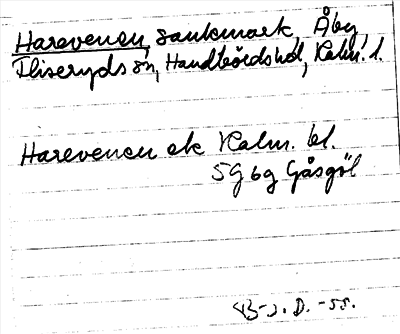 Harevenen, sankmark, Åby,
Fliseryds sn, Handbördshd, Kalm. l.
Harevenen ek Kalm. bl.
5G 6g Gåsgöl
-55.